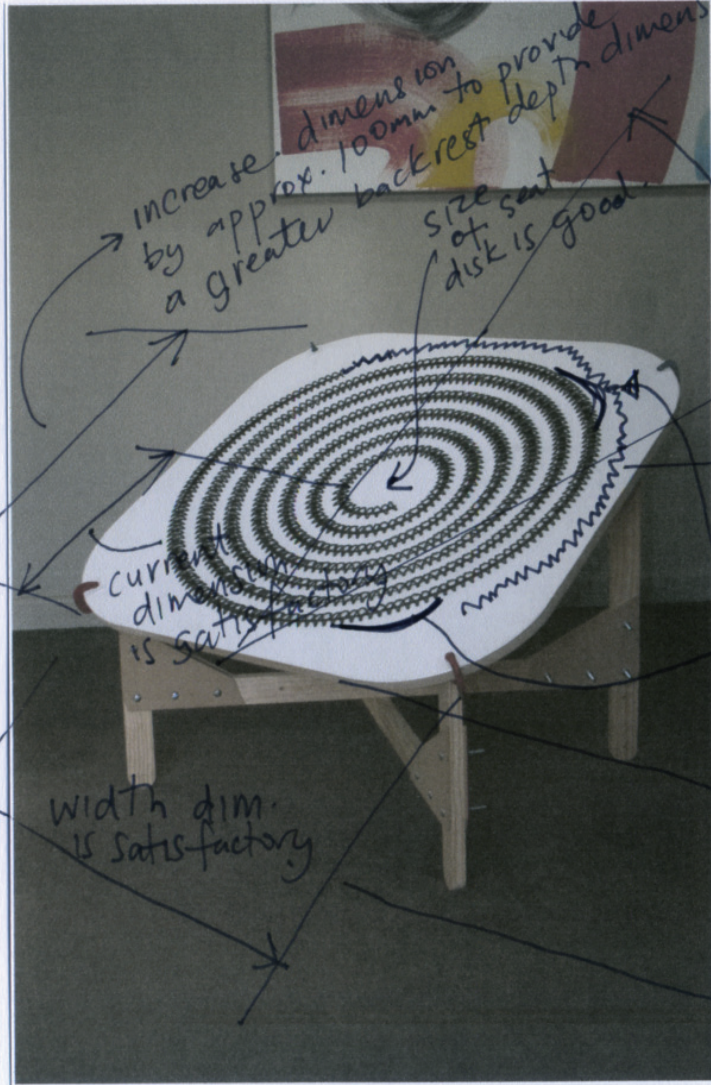 increase. dimension
by approx. 100mm to provide
a greater backrest depth dimens
size
of seat
disk is good.
current
dimension
is satisfactory
width dim.
is satisfactory